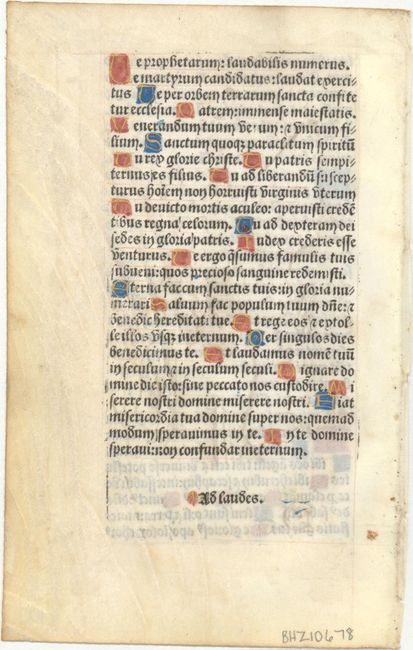 Te prophetarum: laudabilis numerus.
Te martyrum candidatus: laudat exerci-
tus Te per orbem terrarum sancta confite
tur ecclesia. Patrem: immense maiestatis.
Venerandum tuum verum: ⁊ vnicum fi-
lium. Sanctum quoqꝫ paraclitum spiritū
Tu rex glorie christe. Tu patris sempi-
ternus es filius. Tu ad liberandū suscep-
turus hoīem non horruisti virginis vterum
Tu deuicto mortis aculeo: aperuisti credē
tibus regna celorum. Tu ad dexteram dei
sedes in gloria patris. Iudex crederis esse
venturus. Te ergo q̄sumus famulis tuis
subueni: quos precioso sanguine redemisti.
Eterna fac cum sanctis tuis: in gloria nu-
merari Saluum fac populum tuum dn̄e: ⁊
benedic hereditati tue. Et rege eos ⁊ extol-
le illos vsqꝫ in eternum. Per singulos dies
benedicimus te. Et laudamus nomē tuū
in seculum ⁊ in seculum seculi. Dignare do
mine die isto: sine peccato nos custodire. Mi
serere nostri domine miserere nostri. Fiat
misericordia tua domine super nos: quemad
modum sperauimus in te. In te domine
speraui: non confundar in eternum.
Ad laudes.
BHZ10678